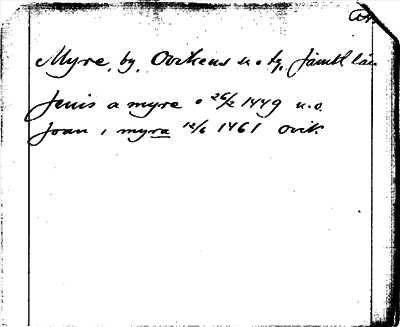 Myre, by, Ovikens s. o tg, Jämtl län
Jenis a myre o 26/2 1449 u.o.
Joan i myra 12/6 1461 Ovik